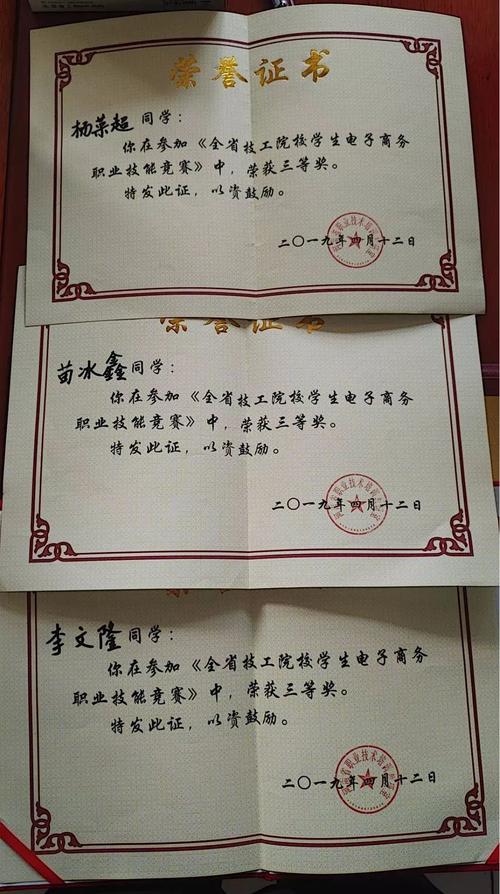 荣誉证书
杨荣超同学：
你在参加《全省技工院校学生电子商务
职业技能竞赛》中，荣获三等奖。
特发此证，以资鼓励。
二〇一九年四月十二日
荣誉证书
苗冰鑫同学：
你在参加《全省技工院校学生电子商务
职业技能竞赛》中，荣获三等奖。
特发此证，以资鼓励。
二〇一九年四月十二日
李文隆同学：
你在参加《全省技工院校学生电子商务
职业技能竞赛》中，荣获三等奖。
特发此证，以资鼓励。
二〇一九年四月十二日